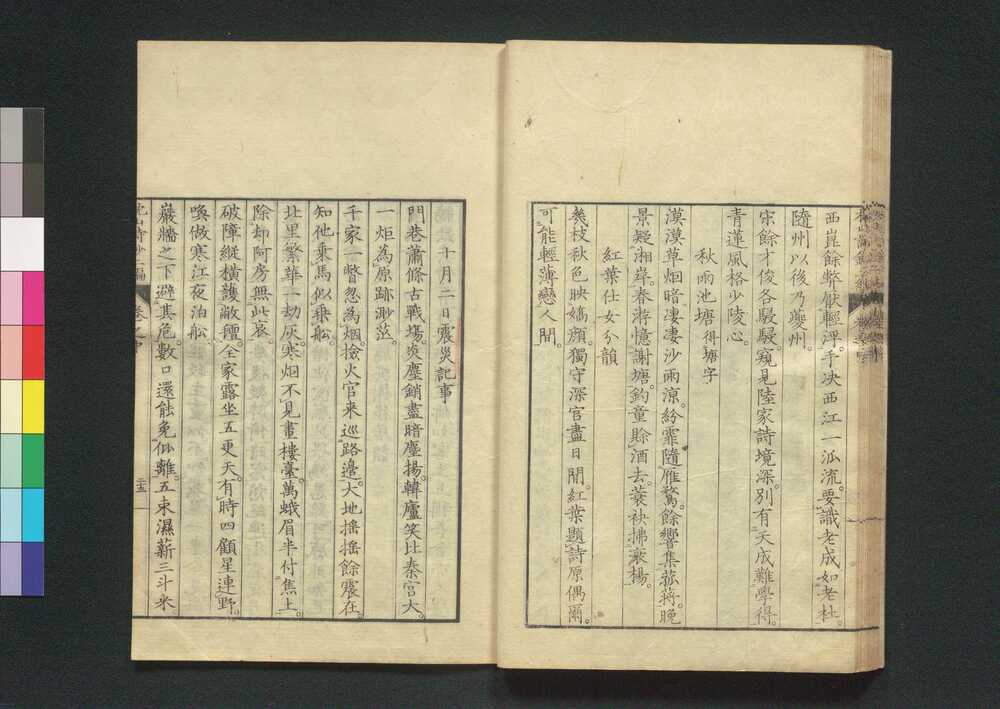 西崑餘弊厭輕浮。手决西江一派流。要識老成如老杜。
隨州以後乃夔州。
宋餘才俊各駸駸。窺見陸家詩境深。別有天成難學得。
青蓮風格少陵心。
秋雨池塘得塘字
漠漠草烟暗凄凄沙雨涼。紛霏隨雁鶩。餘響集菰蔣。晚
景疑湘岸。春游憶謝塘。釣童賒酒去。蓑袂拂衰楊。
紅葉仕女分韻
幾枝秋色映嬌顔。獨守深宮盡日閒。紅葉題詩原偶爾。
可能輕薄戀人間。
十月二日震災記事
門巷蕭條古戰場。炎塵銷盡暗塵揚。韓廬笑比秦宮大。
一炬為原跡渺茫。
千家一瞥忽為烟。撿火官来巡路邊。大地搖搖餘震在。
知他乘馬似乗船。
北里繁華一劫灰。寒烟不見畫樓臺。萬蛾眉半付焦土。
除却阿房無此哀。
破障縱横護敝氊。全家露坐五更天。有時四顧星連野。
喚做寒江夜泊船。
巖牆之下避其危。數口還能免仳離。五束濕薪三斗米